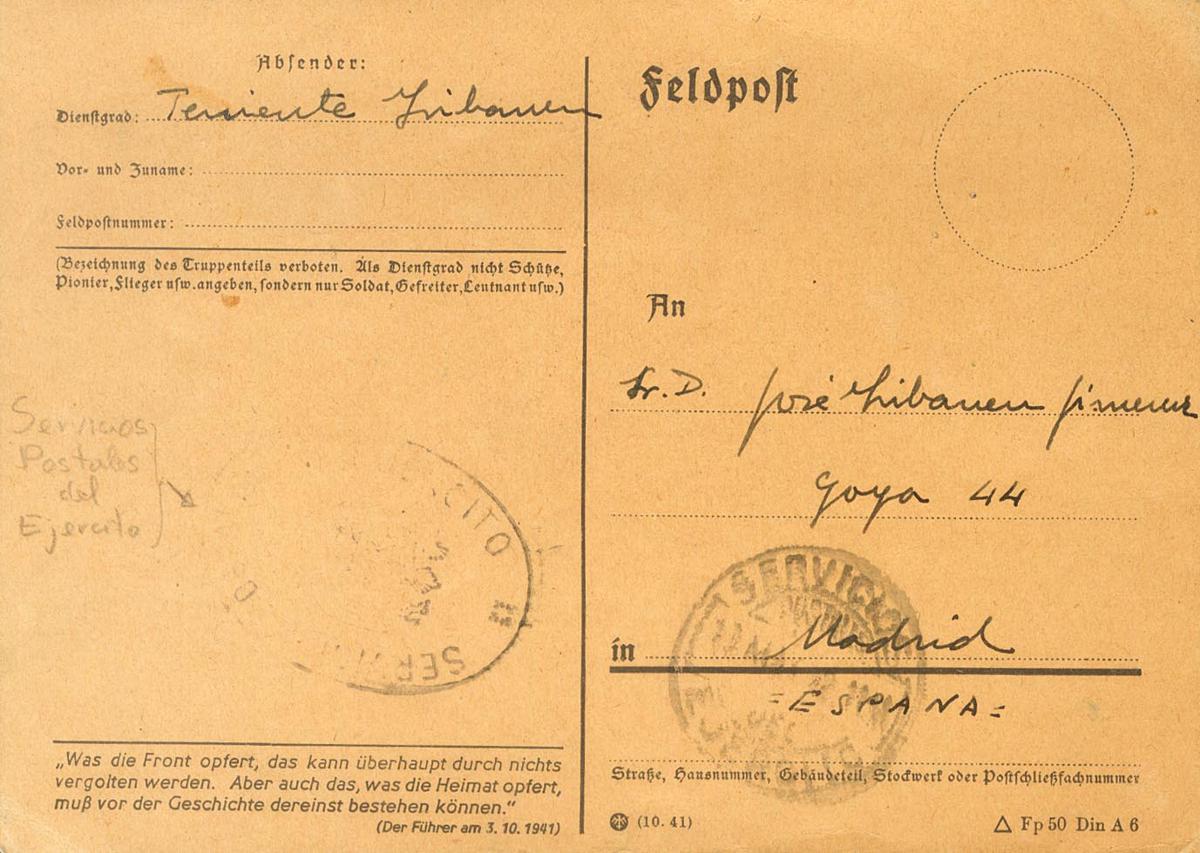 Absender:
Dienstgrad: Teniente Iribarren
Vor- und Zuname:
Feldpostnummer:
(Bezeichnung des Truppenteils verboten. Als Dienstgrad nicht Schütze,
Pionier, Flieger usw. angeben, sondern nur Soldat, Gefreiter, Leutnant usw.)
Servicios
Postales
del
Ejercito
CITO
SERVI
„Was die Front opfert, das kann überhaupt durch nichts
vergolten werden. Aber auch das, was die Heimat opfert,
muß vor der Geschichte dereinst bestehen können.“
(Der Führer am 3. 10. 1941)
Feldpost
An
Sr. D. José Iribarren Jimenez
Goya 44
in Madrid
=ESPAÑA=
SERVICIOS
Straße, Hausnummer, Gebäudeteil, Stockwerk oder Postschließfachnummer
(10. 41)
Fp 50 Din A 6